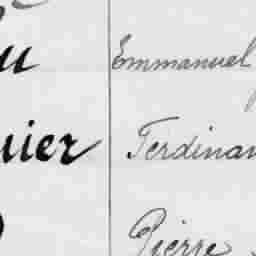 u Emmanuel
uier Ferdinan
Pierre